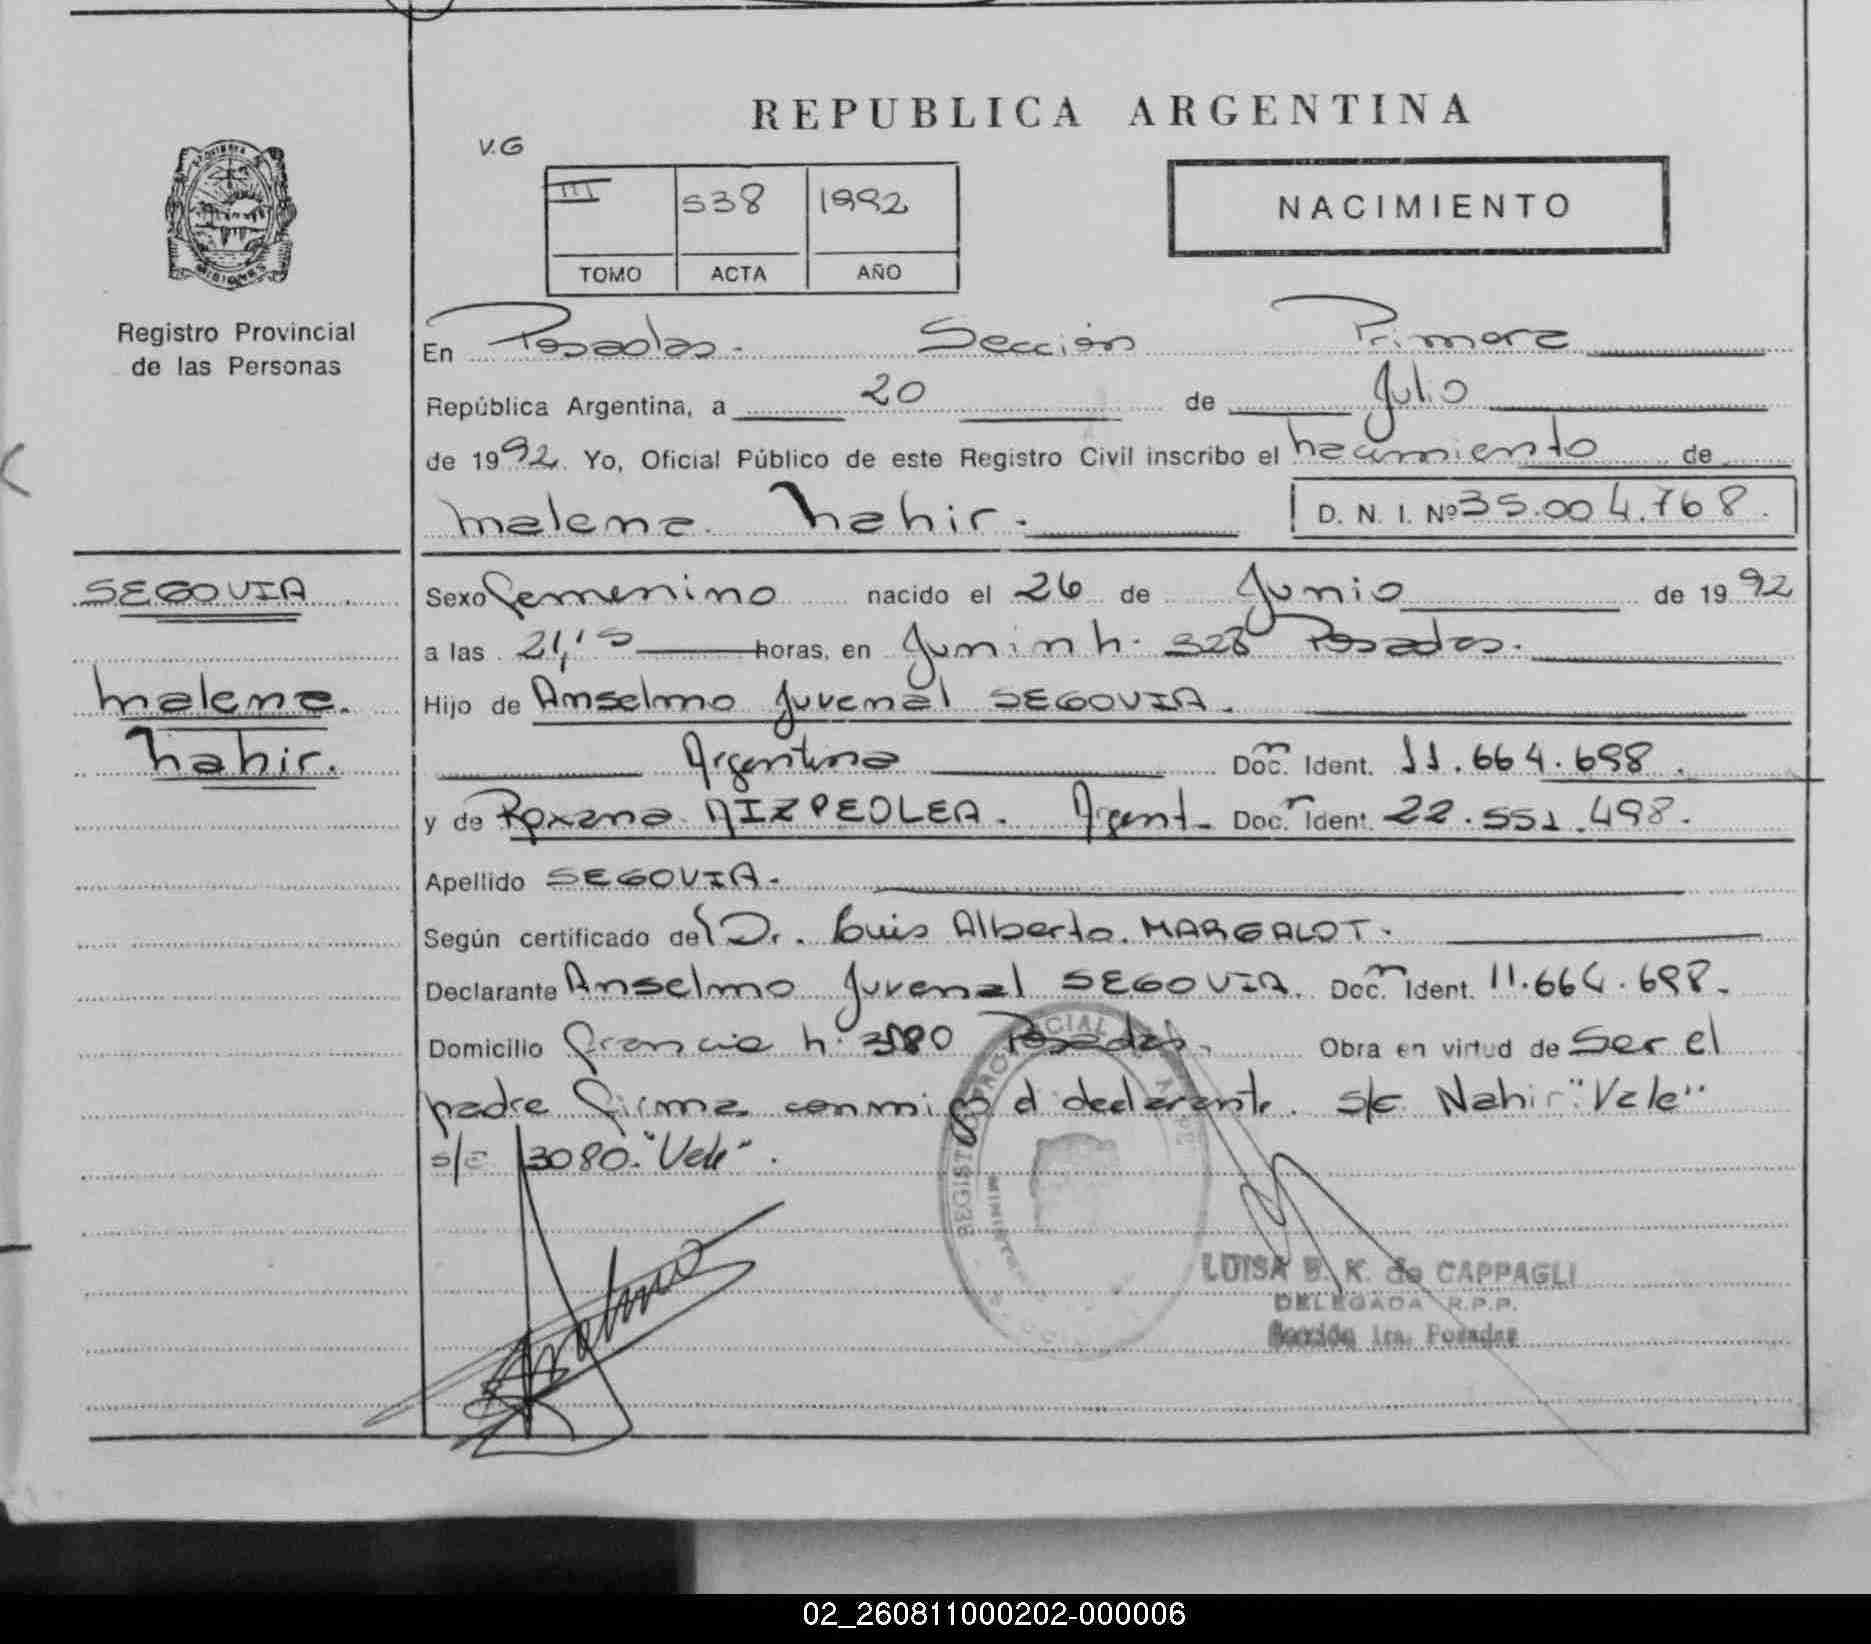 REPUBLICA ARGENTINA
V.G
III 538 1992
TOMO ACTA AÑO
NACIMIENTO
Registro Provincial
de las Personas
En Posadas. Sección Primera
República Argentina, a 20 de Julio
de 1992. Yo, Oficial Público de este Registro Civil inscribo el nacimiento de
Malena Nahir. D. N. I. Nº 35.004.768.
SEGOVIA
Malena
Nahir.
Sexo Femenino nacido el 26 de Junio de 1992
a las 21,15 horas, en Junin Nº 328 Posadas.
Hijo de Anselmo Juvenal SEGOVIA.
Argentina Doc. Ident. 11.664.698.
y de Roxana AIZPEOLEA. Argent. Doc. Ident. 22.551.498.
Apellido SEGOVIA.
Según certificado del Dr. Luis Alberto MARGALOT.
Declarante Anselmo Juvenal SEGOVIA. Doc. Ident. 11.664.698.
Domicilio Francia Nº Posadas. Obra en virtud de Ser el
padre firma conmigo el declarante. s/c Nahir "Vale"
s/c 3080. "Vale".
REGISTRO PROVINCIAL
LUISA B. K. de CAPPAGLI
DELEGADA R.P.P.
Sección 1ra. Posadas
02_260811000202-000006